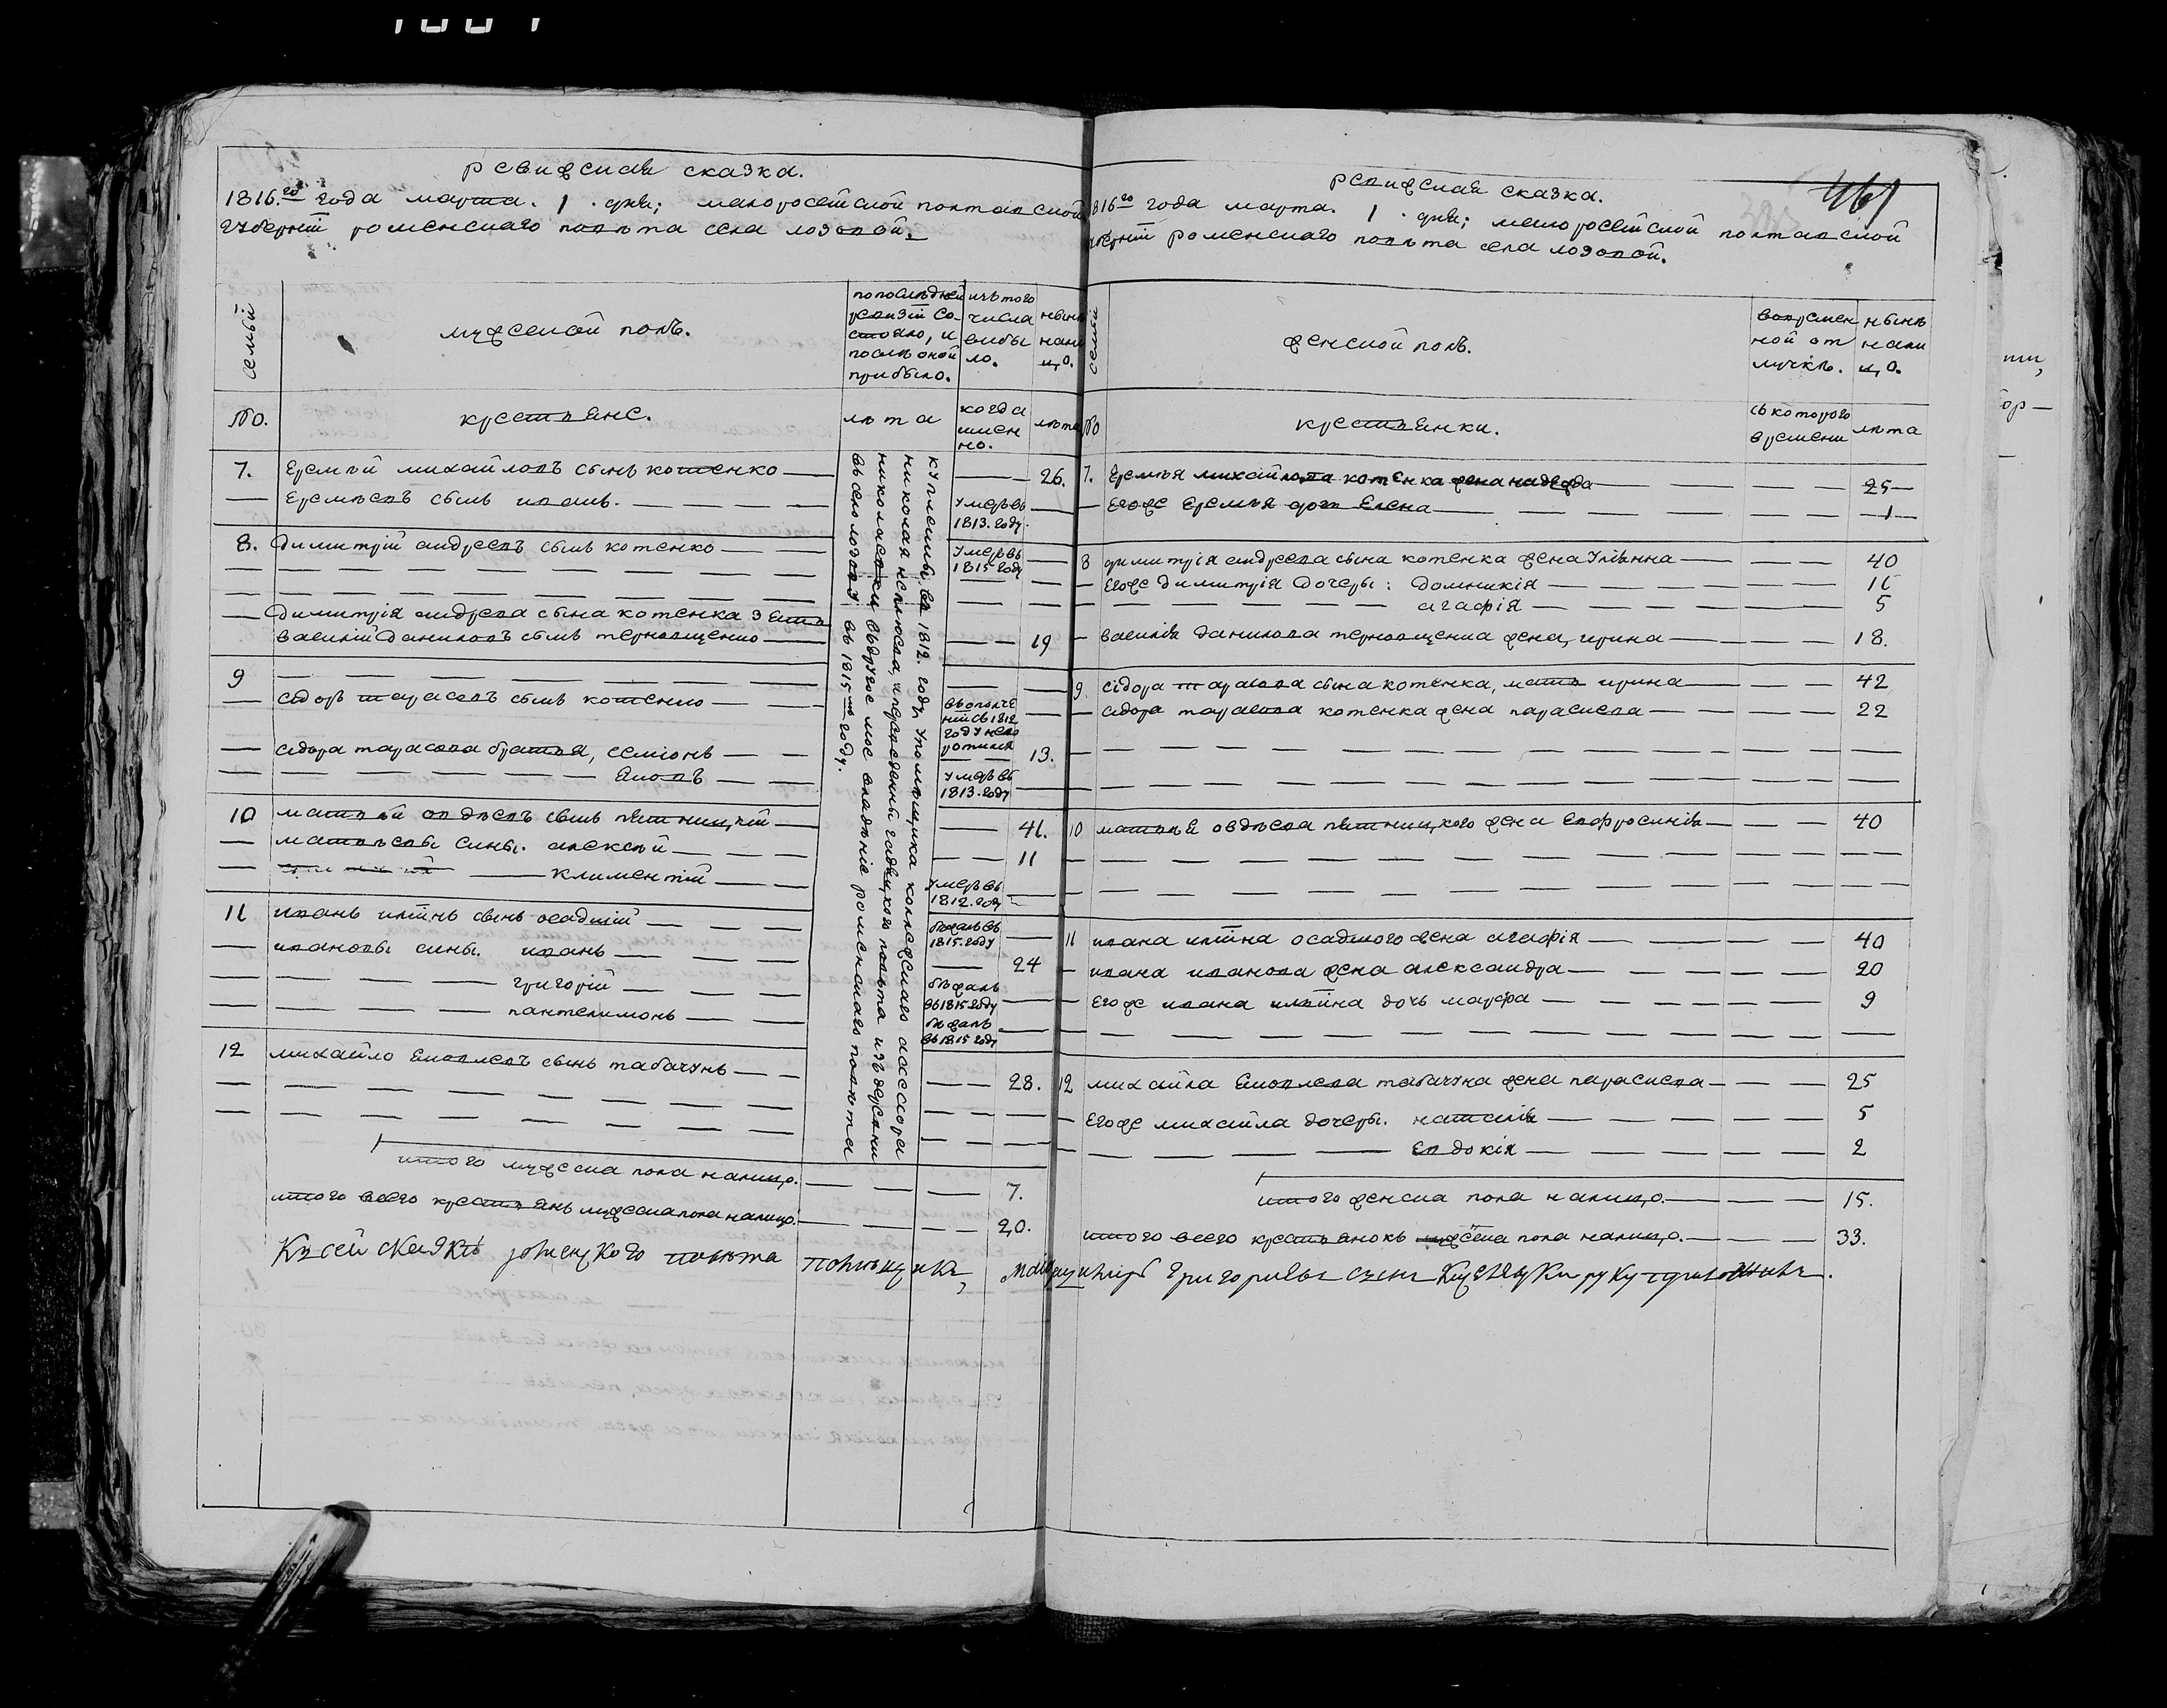 ревизская сказка.
1816.го года марта. 1 . дня; малоросейской полтавской
губерніи роменскаго повѣта села лозовой.
семьи
мужеской полъ.
попослѣдней
ревизіи со-
стояло, и
послѣ оной
прибыло.
изъ того
числа
выбы
ло.
нынѣ
нали
цо.
№.
крестьяне.
лѣта
когда
имен
но.
лѣта
7. Еремѣй михайловъ сынъ котенко — 26.
Еремѣевъ сынъ иванъ. — умеръ въ
1813. году.
8. Димитрій андреевъ сынъ котенко — умеръ въ
1815 году
Димитрія андреева сына котенка зять
василій даниловъ сынъ терновщенко — 19
9
сідоръ тарасовъ сынъ котенко — въ ополче
ніи съ 1812
году нево
ротился
сідора тарасова братья, семіонъ — 13.
Яковъ — умеръ въ
1813. году
10 матвѣй овдѣевъ сынъ пятницкій — 41.
матвѣевы сины. алексѣй — 11
климентій — умеръ въ
1812. году
11 иванъ ильинъ сынъ осадчій — бежалъ въ
1815. году
ивановы сины. иванъ — 24
григорій — бѣжалъ
въ 1815 году
пантелимонъ — бѣжалъ
въ 1815 году
12 михайло Яковлевъ сынъ табачунъ — 28.
куплены въ 1812. году упомѣщика колежскаго асессора
николая неплюева, и переведены гадяцкого повѣта изъ деревни
николаевки въ другое мое владѣніе роменскаго повѣта
въ село лозову въ 1815 году.
итого мужеска пола налицо. — 7.
итого всего крестьянъ мужеска пола налицо. — 20.
461
ревизская сказка.
1816го года марта. 1 . дня; малоросейской полтавской
губерніи роменскаго повѣта села лозовой.
семьи
женской полъ.
вовремен
ной от
лучкѣ.
нынѣ
нали
цо.
№
крестьянки.
съ которого
времени
лѣта
7. Еремѣя михайлова котенка жена надежда — 25
Егоже Еремѣя дочь Елена — 1
8 димитрія андреева сына котенка жена Уліянна — 40
Егоже Димитрія Дочеры: Домникія — 16
агафія — 5
василія данилова терновщенка жена, ирина — 18.
9. сідора тарасова сына котенка, мать ирина — 42
сідора тарасова котенка жена параскева — 22
10 матвѣя овдѣева пятницкого жена Евфросинія — 40
11 ивана ильина осадчого жена агафія — 40
ивана иванова жена александра — 20
Егоже ивана ильина дочь марфа — 9
12 михайла Яковлева табачуна жена параскева — 25
Егоже михайла дочеры. наталія — 5
Евдокія — 2
итого женска пола налицо. — 15.
итого всего крестьянокъ женска пола налицо. — 33.
Къ сей сказкѣ роменского повѣта помѣщикъ, григориевъ сынъ руку приложилъ.